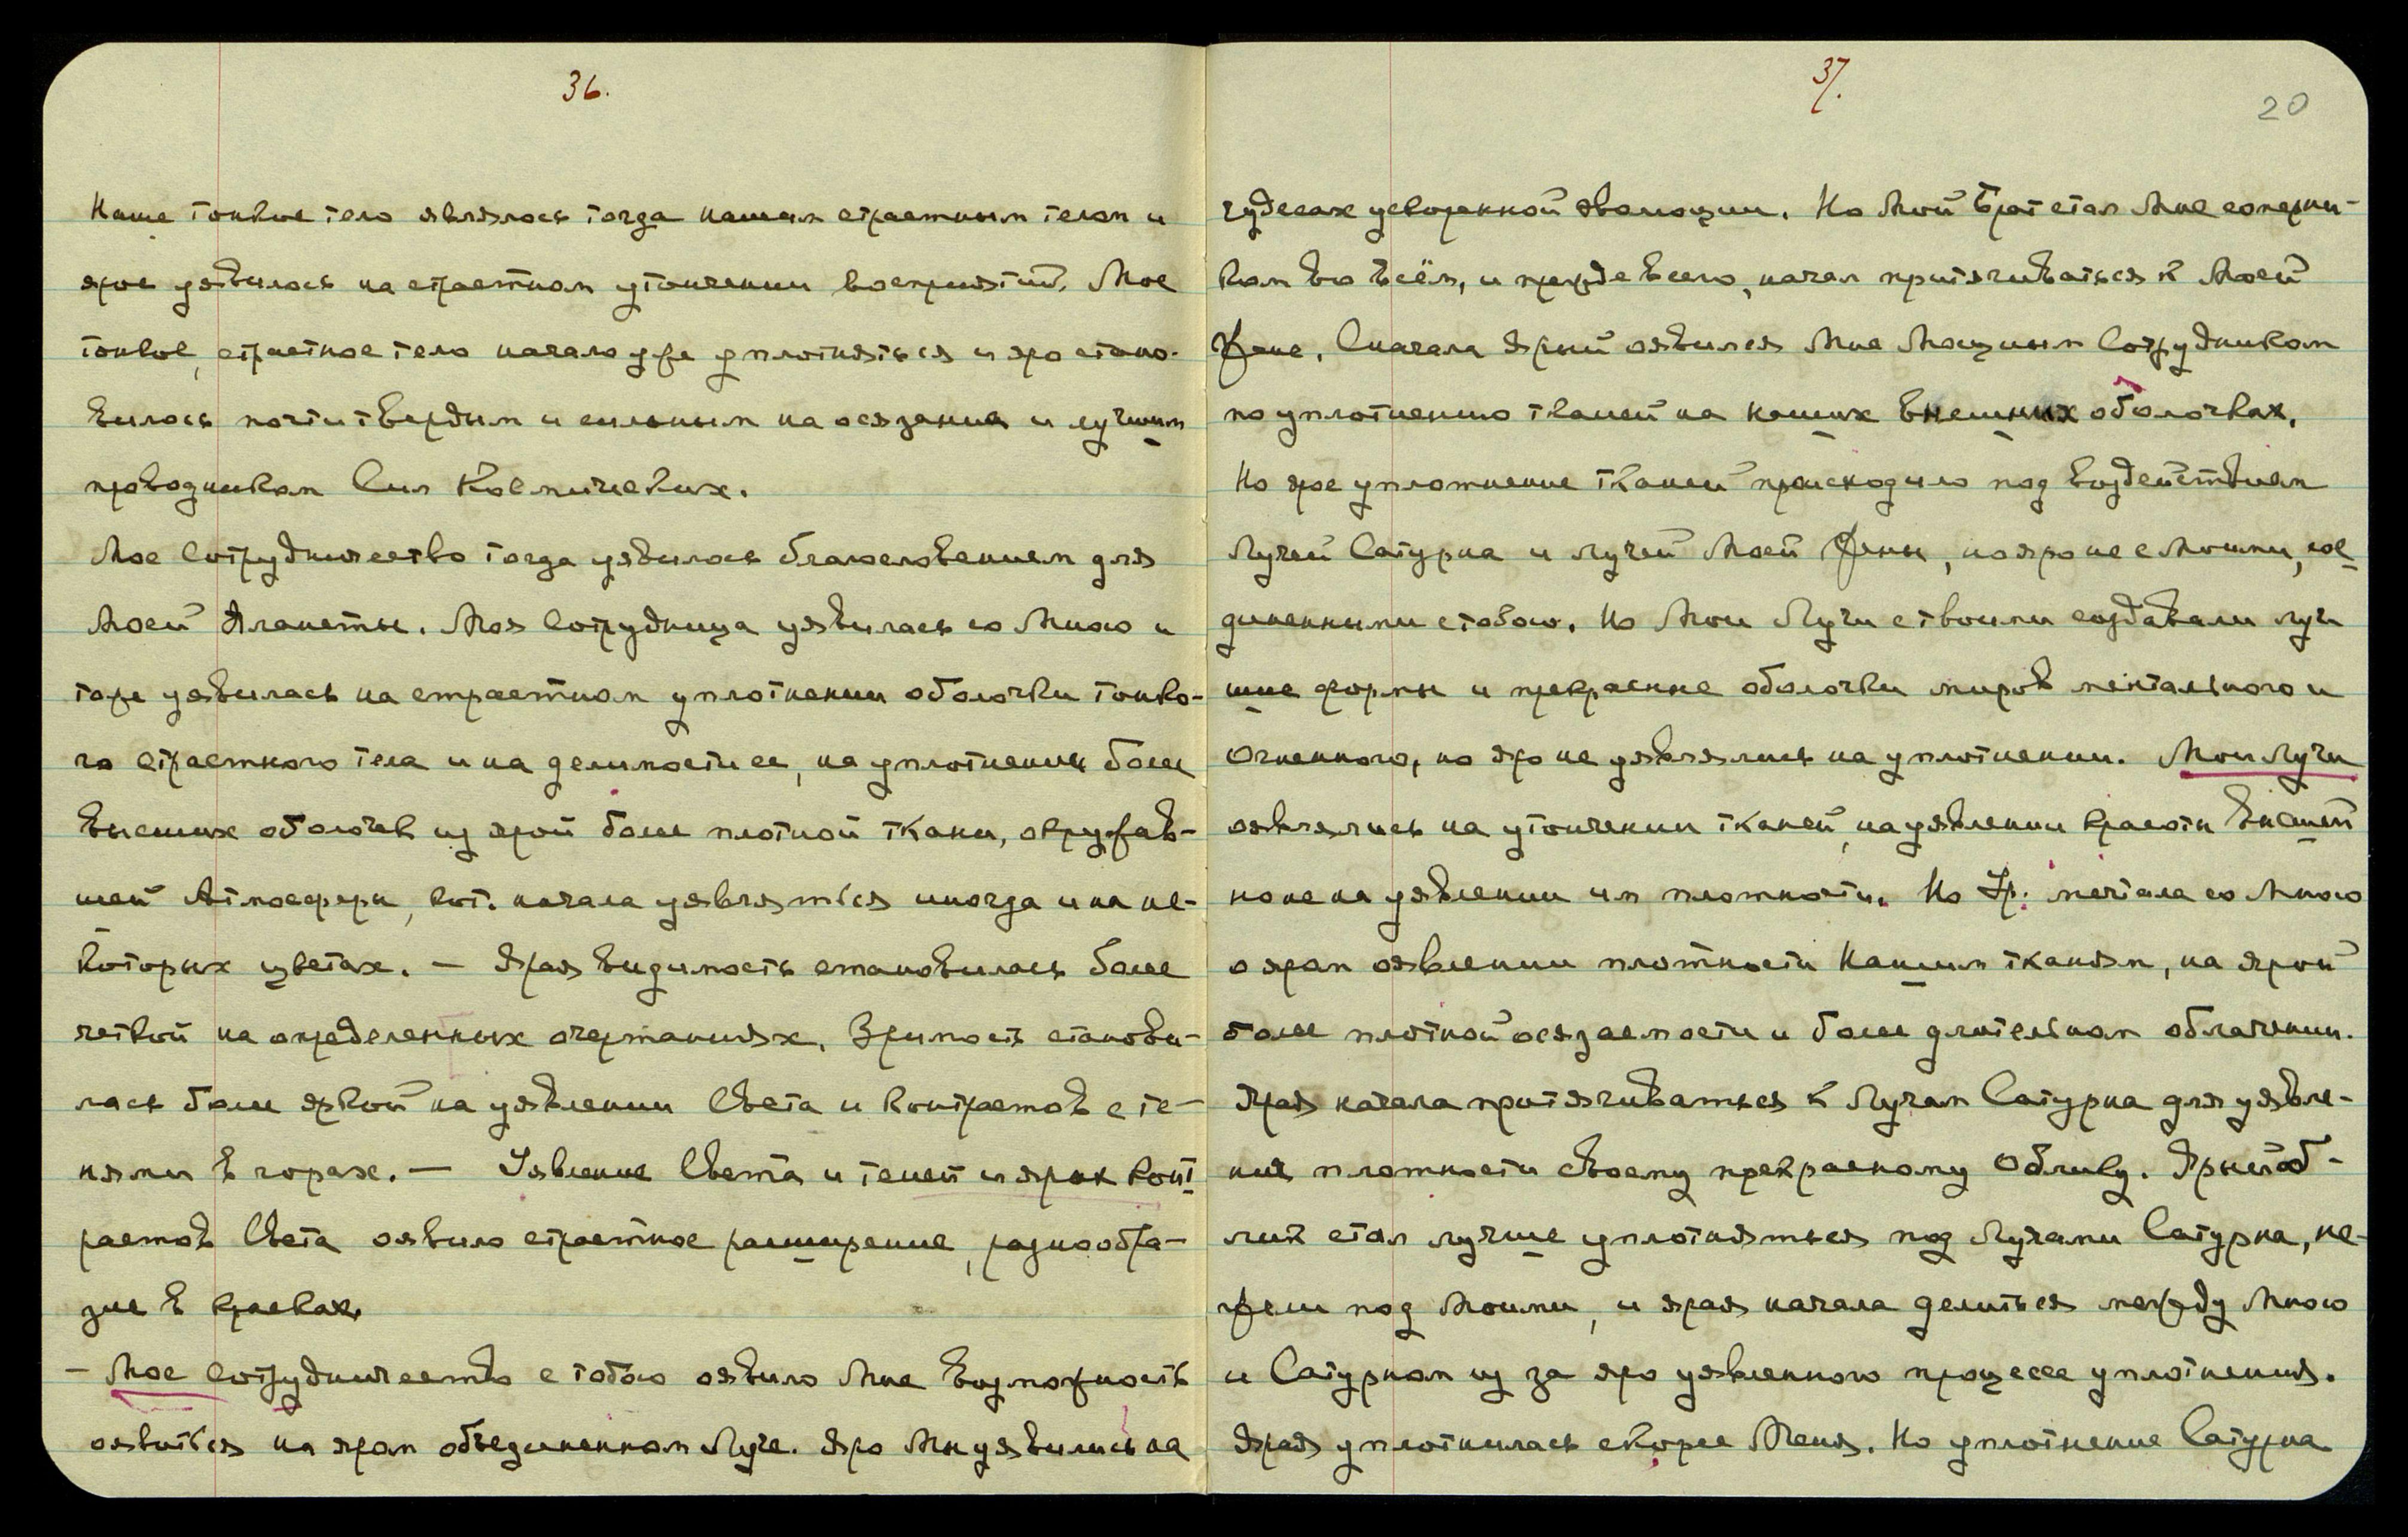 36.
Наше тонкое тело являлось тогда нашим страстным телом и
ярое уявилось на страстном утончении восприятий. Мое
тонкое, страстное тело начало уже уплотняться и яро стано-
вилось почти твердым и сильным на осязание и лучшим
проводником Сил Космических.
Мое Сотрудничество тогда уявилось благословением для
Моей Планеты. Моя Сотрудница уявилась со Мною и
тоже уявилась на страстном уплотнении оболочки тонко-
го страстного тела и на делимости ее, на уплотнении более
высших оболочек из ярой более плотной ткани, окружав-
шей Атмосферы, кот. начала уявляться иногда и на не-
которых цветах. — Ярая видимость становилась более
четкой на определенных очертаниях. Зримость станови-
лась более яркой на уявлении Света и контрастов с те-
нями в горах. — Уявление Света и теней и ярых конт
растов Света оявило страстное расширение, разнообра-
зие в красках.
— Мое сотрудничество с тобою оявило Мне возможность
оявиться на яром объединенном Луче. Яро Мы уявились на
37.
20
чудесах ускоренной эволюции. Но Мой Брат стал Мне соперни-
ком во всём, и прежде всего, начал притягиваться к Моей
Жене. Сначала Ярый оявился Мне Мощным Сотрудником
по уплотнению тканей на наших внешних оболочках.
Но ярое уплотнение тканей происходило под воздействием
Лучей Сатурна и лучей Моей Жены, но яро не с Моими, сое
диненными с тобою. Но Мои Лучи с твоими создавали луч
шие формы и прекрасные оболочки миров ментального и
Огненного, но яро не уявлялись на уплотнении. Мои Лучи
оявлялись на утончении тканей, на уявлении красоты внешней
но не на уявлении им плотности. Но Ур. мечтала со Мною
о яром оявлении плотности Нашим тканям, на ярой
более плотной осязаемости и более длительном облачении.
Ярая начала притягиваться к Лучам Сатурна для уявле-
ния плотности своему прекрасному Облику. Ярый об-
лик стал лучше уплотняться под Лучами Сатурна, не-
жели под Моими, и ярая начала делиться между Мною
и Сатурном из за яро уявленного процесса уплотнения.
Ярая уплотнилась скорее Меня. Но уплотнение Сатурна